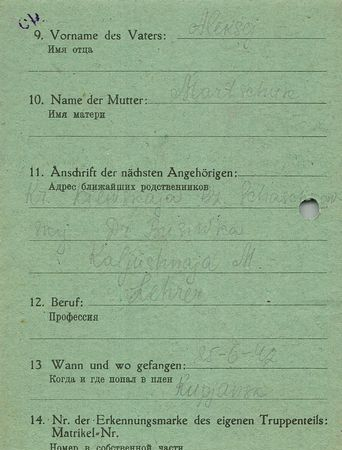 9. Vorname des Vaters: Alexej
Имя отца
10. Name der Mutter: Martschuk
Имя матери
11. Anschrift der nächsten Angehörigen:
Адрес ближайших родственников
Kr. Kiewskaja
Kaljushnaja M.
12. Beruf: Lehrer
Профессия
13 Wann und wo gefangen: 25-6-42
Когда и где попал в плен Kupjansk
14. Nr. der Erkennungsmarke des eigenen Truppenteils:
Matrikel-Nr.
Номер в собственной части